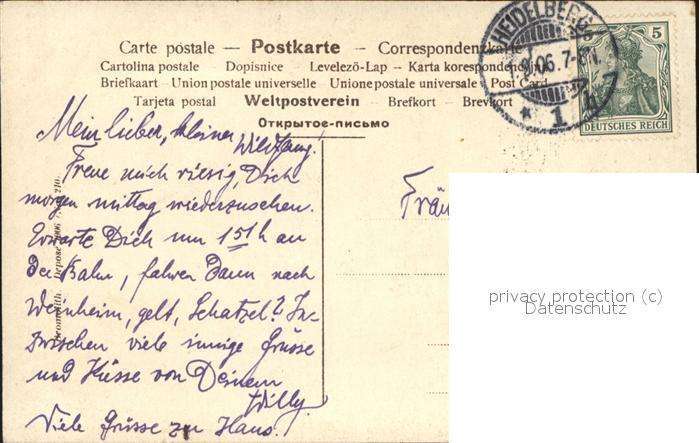 Carte postale — Postkarte — Correspondenzkarte
Cartolina postale - Dopisnice - Levelező-Lap - Karta korespondencyjna
Briefkaart - Union postale universelle - Unione postale universale - Post Card
Tarjeta postal - Weltpostverein - Brefkort - Brevkort
Открытое-письмо
HEIDELBERG
06.7-8N.
* 1 h
5
DEUTSCHES REICH
Mein lieber, kleiner Wildfang!
Freue mich riesig, Dich
morgen mittag wiederzusehen.
Erwarte Dich um 1 51 h an
der Bahn, fahren dann nach
Weinheim, gelt, Schatzel? In-
zwischen viele innige Grüsse
und Küsse von Deinem
Willy.
Viele Grüsse zu Haus.
Fräu
privacy protection (c)
Datenschutz